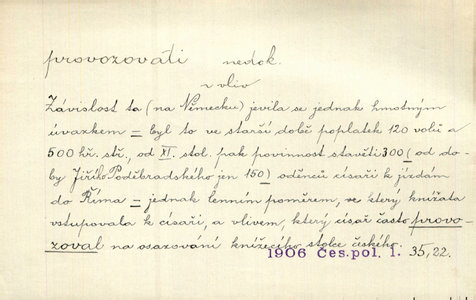 provozovati nedok.
v vliv
Závislost ta (na Německu) jevila se jednak hmotným
úvazkem = byl to ve starší době poplatek 120 volů a
500 hř. stř., od XI. stol. pak povinnost stavěti 300 (od do-
by Jiřího Poděbradského jen 150) oděnců císaři k jízdám
do Říma = jednak lenním poměrem, ve který knížata
vstupovala k císaři, a vlivem, který císař často provo-
zoval na osazování knížecího stolce českého.
1906 Čes. pol. I. 35, 22.